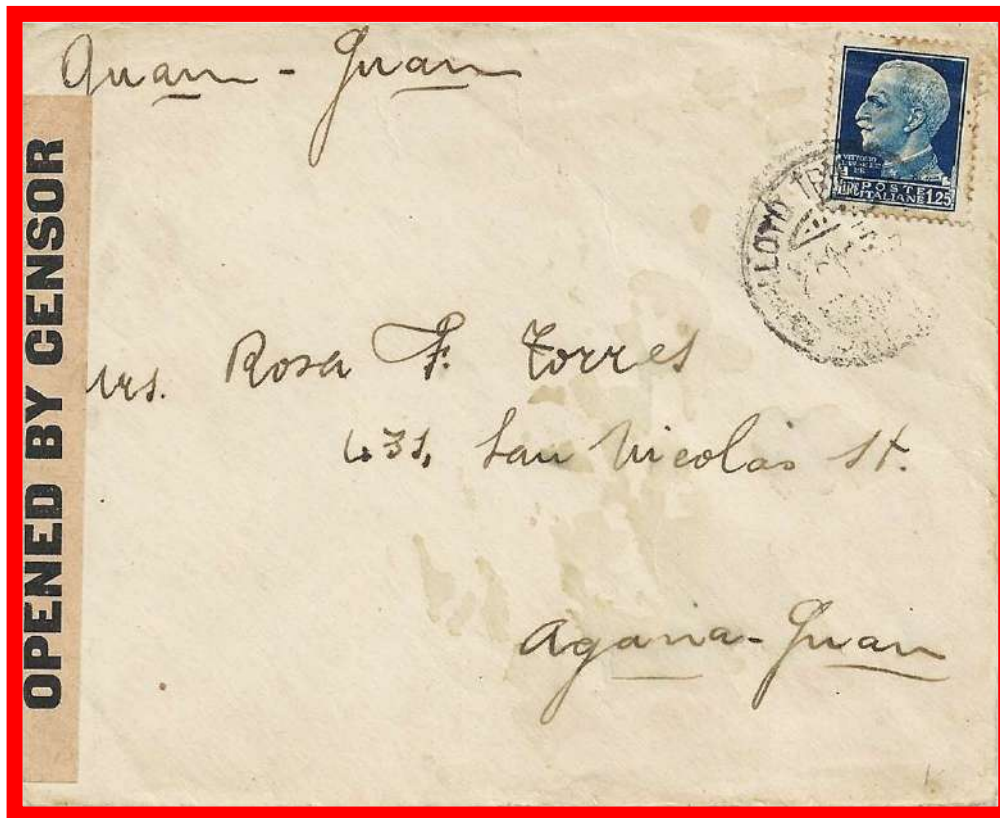 Guam - Guam
OPENED BY CENSOR
POSTE
LIRE ITALIANE 1.25
Mrs. Rosa F. Torres
431, San Nicolas St.
Agana - Guam